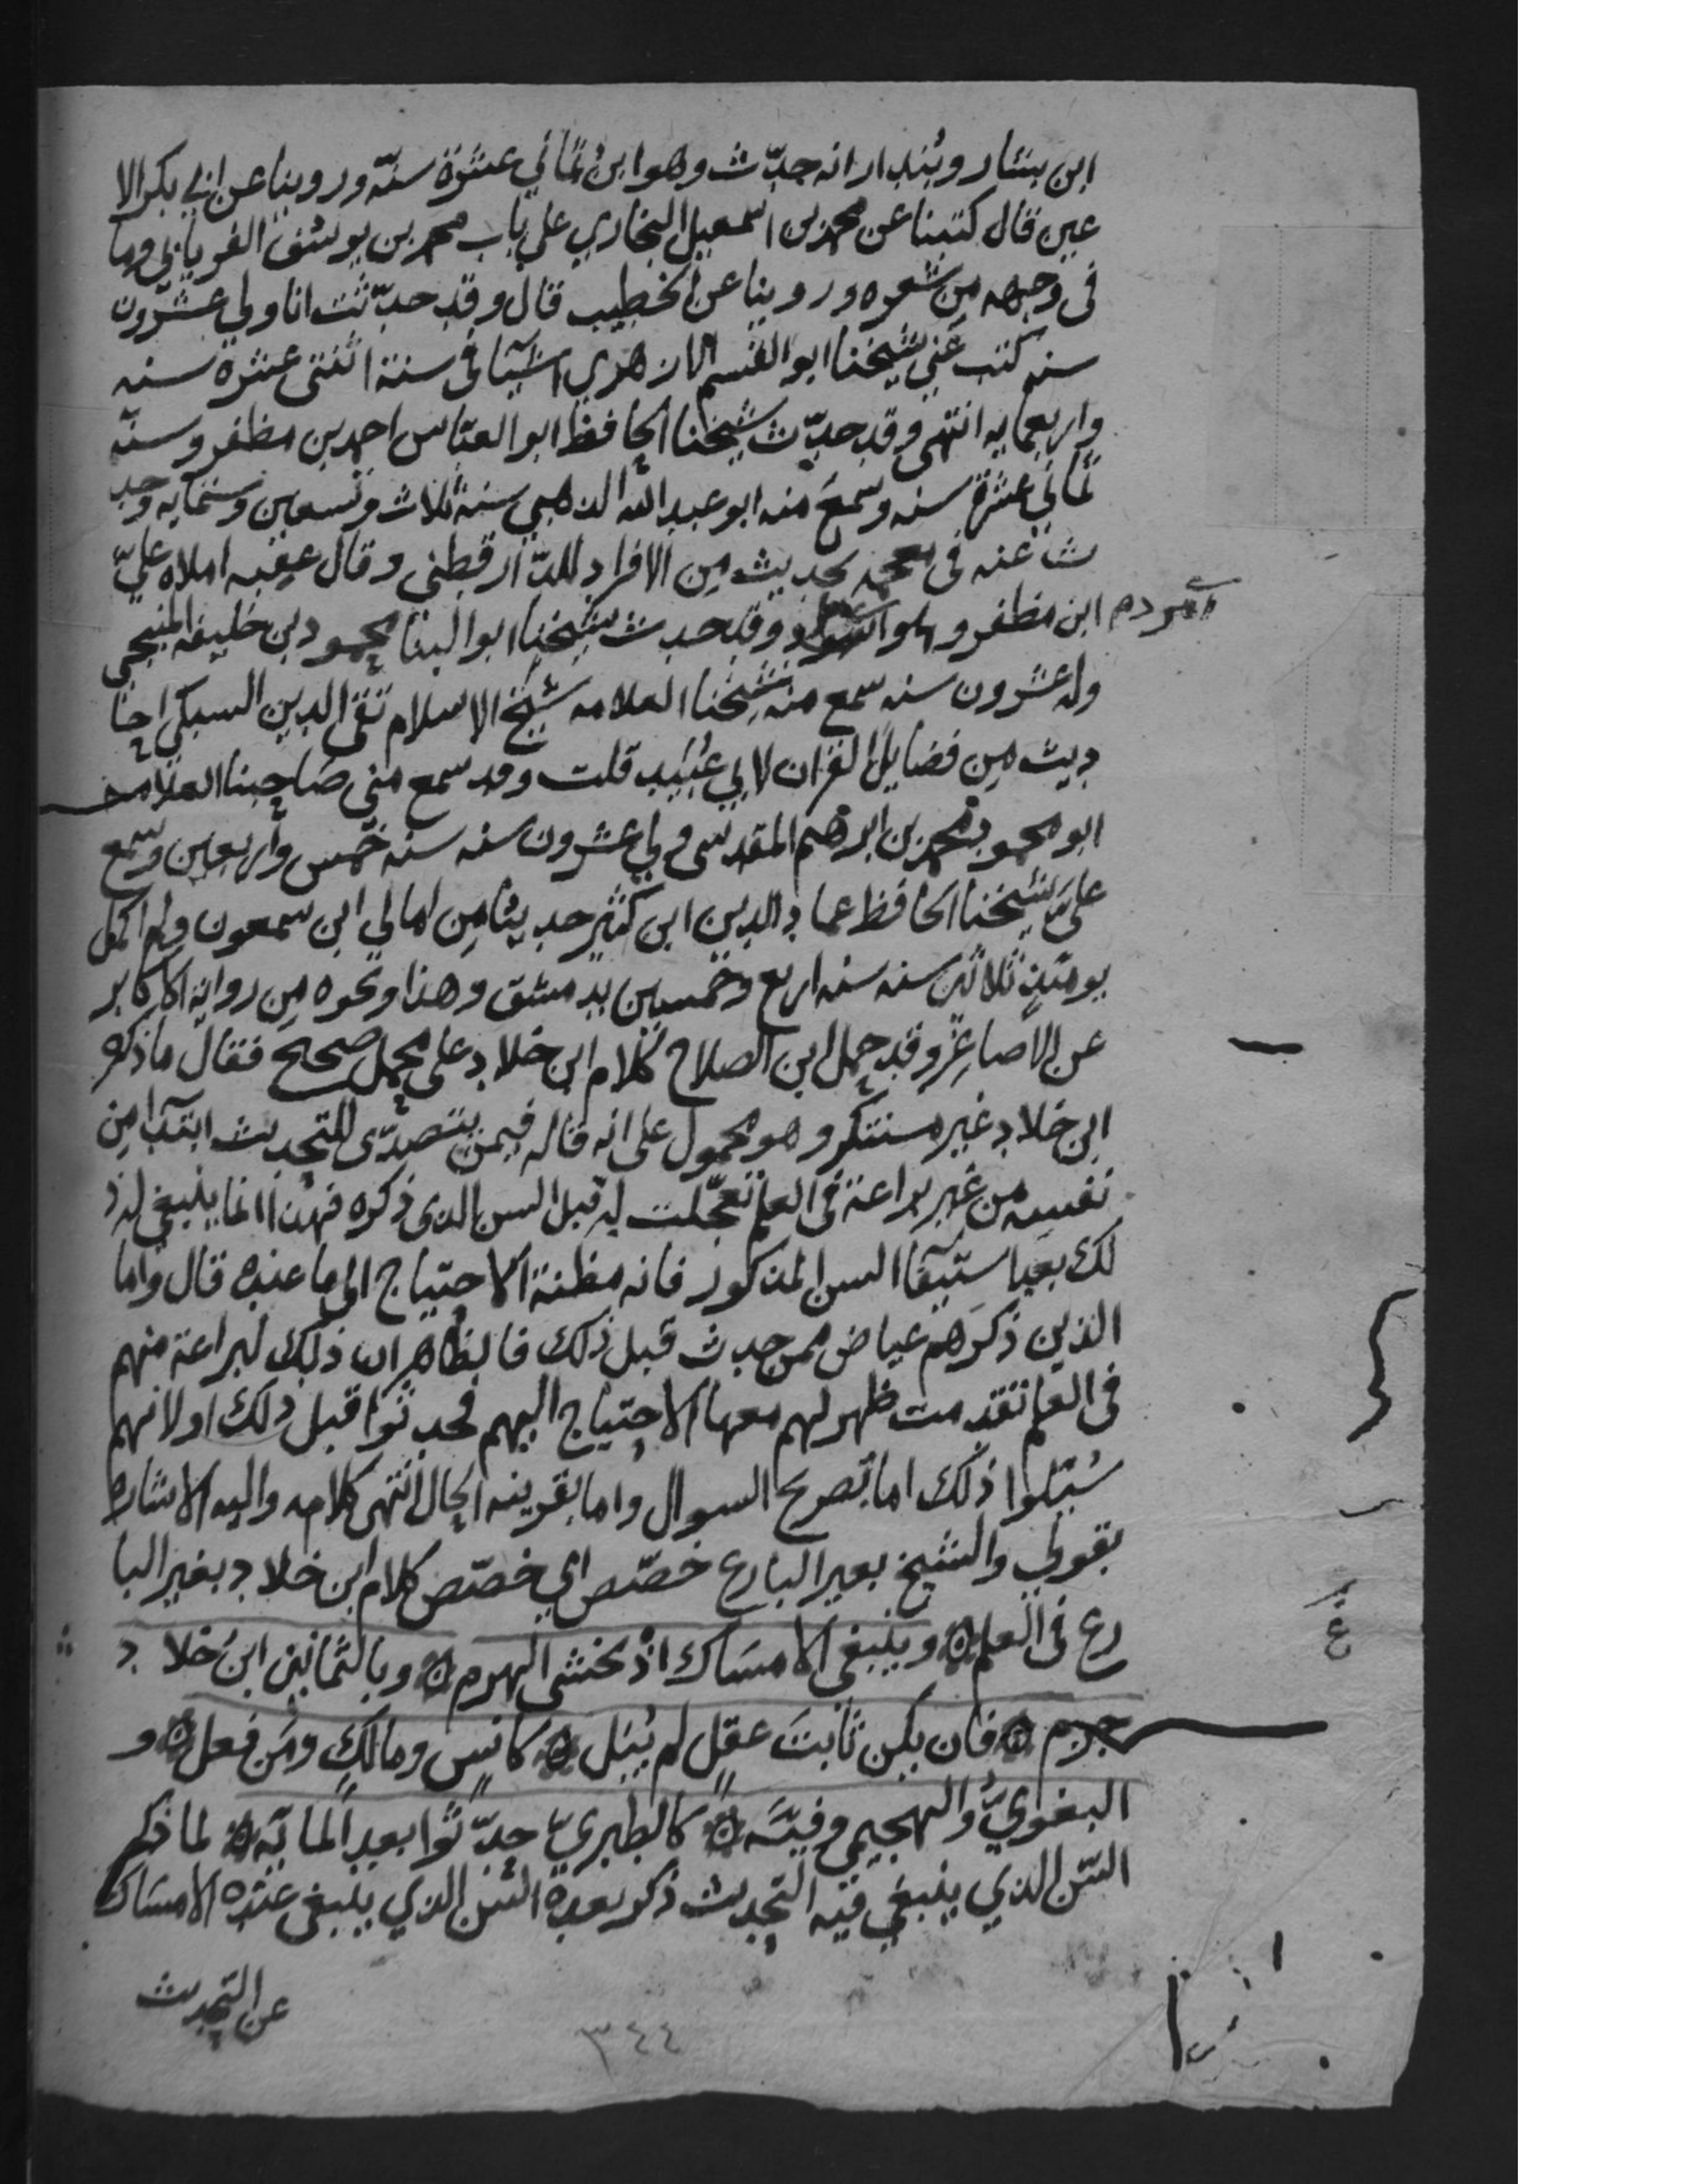 ابن بشار وبُندار انه حدّث وهو ابن ثماني عشرة سنّة وروينا عن ابي بكر الا
عين قال كتبنا عن محمد بن اسمعيل البخاري علي باب محمد بن يوسف الفريابي وما
فى وجهه من شعره وروينا عن الخطيب قال وقد حدّثت انا ولي عشرون
سنه كتب عني شيخنا ابو القسم الازهري اشيآ فى سنة اثنتى عشرة سنه
واربعمايه انتهى وقد حدّث شيخنا الحافظ ابو العبّاس احمد بن مظفر وسنّه
ثماني عشرة سنه وسمع منه ابو عبد الله الذهبي سنة ثلاث وتسعين وستمايه وحد
ث عنه فى معجمه بحديث من الافراد للدّارقطني وقال عقبه املاه عليّ
ابن مظفر وهو امرد وقد حدث شيخنا ابو الثنا محمود بن خليفه المنبجى
امرد م
وله عشرون سنه سمع منه شيخنا العلامه شيخ الاسلام تقى الدين السبكي احا
ديث من فضايل القران لابي عُبَيد قلت وقد سمع منى صاحبنا العلامه
ابو محمود محمد بن ابرهيم المقدسى ولي عشرون سنه سنه خمس واربعين وسمع
عليّ شيخنا الحافظ عماد الدين ابن كثير حديثا من امالي ابن سمعون ولم اكمل
يومئذٍ ثلاثين سنه سنه اربع وخمسين بدمشق وهذا ونحوه من روايه الاكابر
عن الاصاغر وقد حمل ابن الصلاح كلام ابن خلاد على محمل صحيح فقال ما ذكره
ابن خلاد غير مستنكر وهو محمول على انه قاله فيمن يتصدّى للتحديث ابتدآ من
نفسه من غير براعة فى العلم تعجّلت له قبل السن الذى ذكره فهذا انما ينبغي له ذ
لك بعد استيفآ السن المذكور فانه مظنة الاحتياج الى ما عنده قال واما
الذين ذكرهم عياض ممن حدث قبل ذلك فالظاهر ان ذلك لبراعة منهم
فى العلم تقدمت ظهر لهم معها الاحتياج اليهم فحدثوا قبل ذلك او لانهم
سُئلوا ذلك اما بصريح السوال واما بقرينه الحال انتهى كلامه واليه الاشارة
بقولي والشيخ بغير البارع خصّص اي خصّص كلام ابن خلاد بغير البا
رع فى العلم ۞ وينبغى الامسَاك اذ يخشى الهرم ۞ وبالثمانين ابن خلاد
جزم ۞ فان يكن ثابتَ عقلٍ لم يُبَل ۞ كانسٍ ومالكٍ ومَن فعل ۞ و
البغويُّ والهجيمي وفئَه ۞ كالطبريّ حدّثوا بعد المايَه ۞ لما ذكر
السّن الذي ينبغي فيه التحديث ذكر بعده السّن الذي ينبغى عنده الامسَاك
عن التحديث
٣٤٤